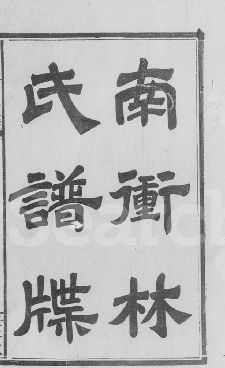 南衝林
氏譜牒